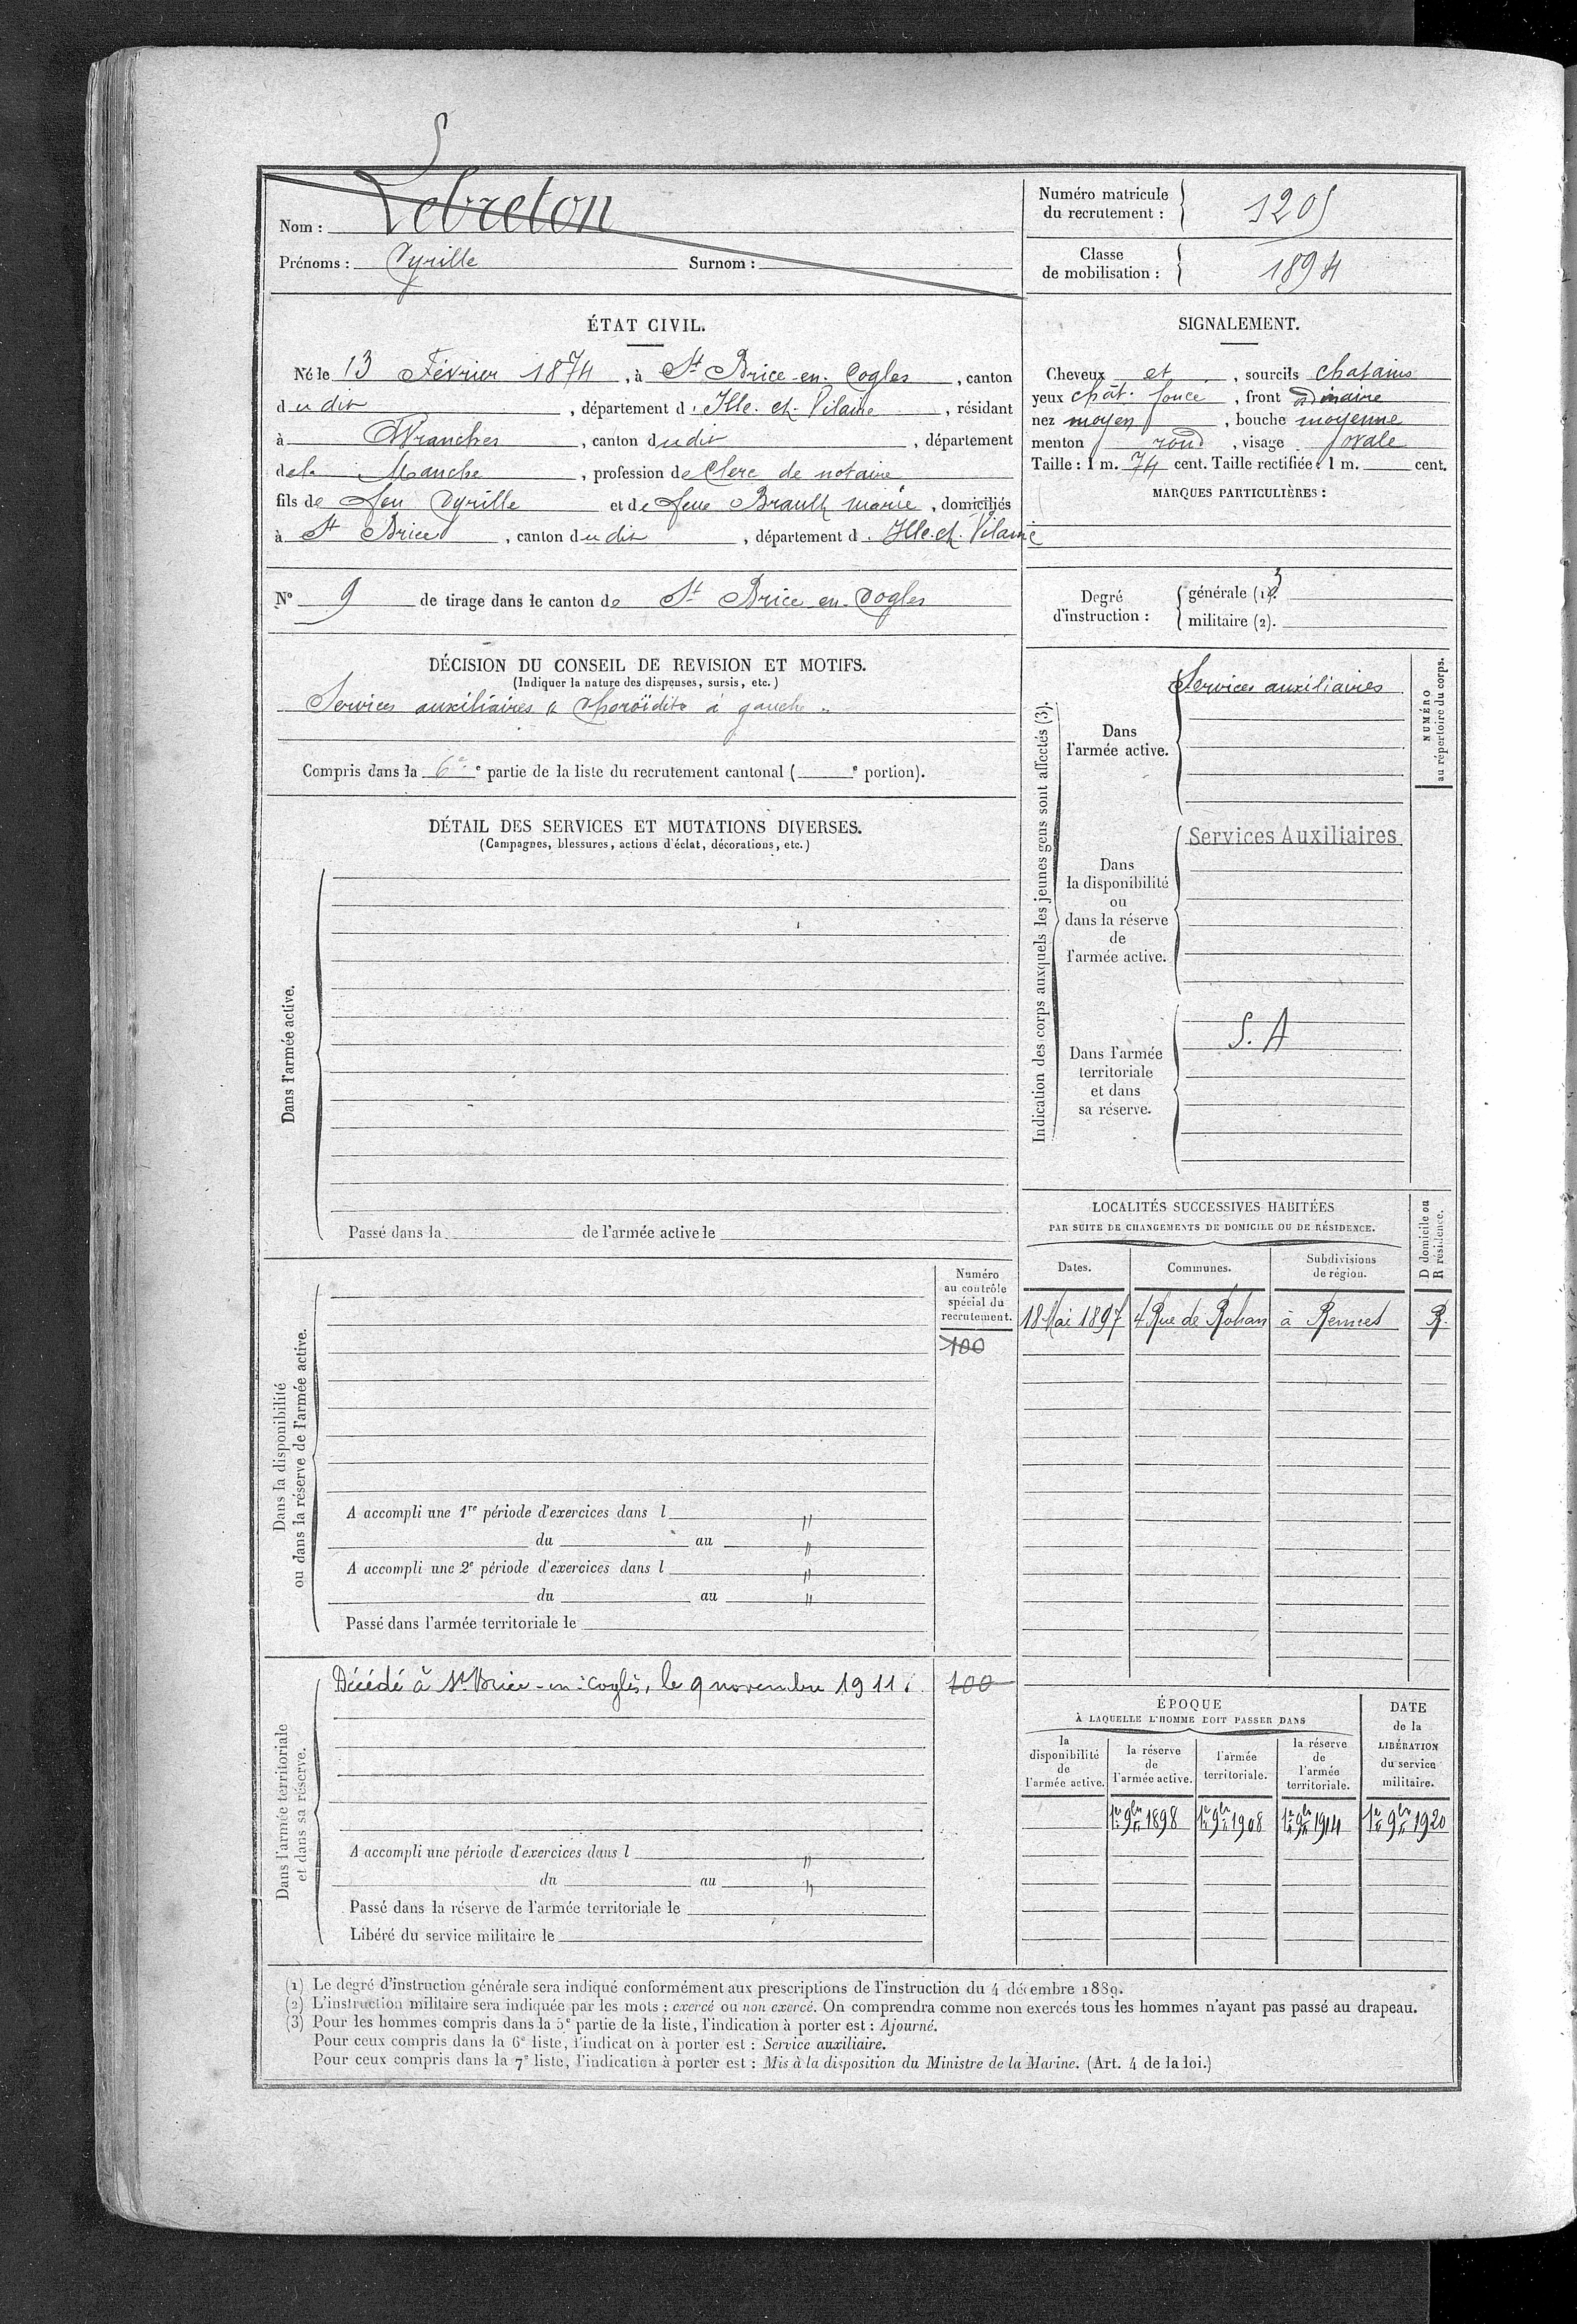 Nom : Lebreton
Prénoms : Cyrille Surnom :
Numéro matricule
du recrutement : 1205
Classe
de mobilisation : 1894
ÉTAT CIVIL.
Né le 13 Février 1874, à St Brice-en-Cogles, canton
dudit, département d. Ille-et-Vilaine, résidant
à Avranches, canton dudit, département
de la Manche, profession de Clerc de notaire
fils de feu Cyrille et de feue Brault marie, domiciliés
à St Brice, canton dudit, département d. Ille-et-Vilaine
SIGNALEMENT.
Cheveux et, sourcils chatains
yeux chât. foncé, front ordinaire
nez moyen, bouche moyenne
menton rond, visage ovale
Taille : 1 m. 74 cent. Taille rectifiée : 1 m. cent.
MARQUES PARTICULIÈRES :
N° 9 de tirage dans le canton de St Brice-en-Cogles
Degré
d'instruction :
générale (1). 3
militaire (2).
DÉCISION DU CONSEIL DE REVISION ET MOTIFS.
(Indiquer la nature des dispenses, sursis, etc.)
Services auxiliaires « Choroïdite à gauche »
Compris dans la 6e e partie de la liste du recrutement cantonal ( e portion).
DÉTAIL DES SERVICES ET MUTATIONS DIVERSES.
(Campagnes, blessures, actions d'éclat, décorations, etc.)
Dans l'armée active.
Passé dans la de l'armée active le
Indication des corps auxquels les jeunes gens sont affectés (3).
Dans
l'armée active.
Services auxiliaires
NUMÉRO
au répertoire du corps.
Dans
la disponibilité
ou
dans la réserve
de
l'armée active.
Services Auxiliaires
Dans l'armée
territoriale
et dans
sa réserve.
S. A
LOCALITÉS SUCCESSIVES HABITÉES
PAR SUITE DE CHANGEMENTS DE DOMICILE OU DE RÉSIDENCE.
D domicile ou
R résidence.
Dates. Communes. Subdivisions
de région.
18 Mai 1897 4 Rue de Rohan à Rennes R.
Dans la disponibilité
ou dans la réserve de l'armée active.
Numéro
au contrôle
spécial du
recrutement.
100
A accompli une 1re période d'exercices dans l "
du au "
A accompli une 2e période d'exercices dans l "
du au "
Passé dans l'armée territoriale le
Dans l'armée territoriale
et dans sa réserve.
Décédé à St Brice-en-Coglès, le 9 novembre 1911. 100
A accompli une période d'exercices dans l "
du au "
Passé dans la réserve de l'armée territoriale le
Libéré du service militaire le
ÉPOQUE
À LAQUELLE L'HOMME DOIT PASSER DANS
la
disponibilité
de
l'armée active.
la réserve
de
l'armée active.
l'armée
territoriale.
la réserve
de
l'armée
territoriale.
DATE
de la
LIBÉRATION
du service
militaire.
1er 9bre 1898 1er 9bre 1908 1er 9bre 1914 1er 9bre 1920
(1) Le degré d'instruction générale sera indiqué conformément aux prescriptions de l'instruction du 4 décembre 1889.
(2) L'instruction militaire sera indiquée par les mots : exercé ou non exercé. On comprendra comme non exercés tous les hommes n'ayant pas passé au drapeau.
(3) Pour les hommes compris dans la 5e partie de la liste, l'indication à porter est : Ajourné.
Pour ceux compris dans la 6e liste, l'indication à porter est : Service auxiliaire.
Pour ceux compris dans la 7e liste, l'indication à porter est : Mis à la disposition du Ministre de la Marine. (Art. 4 de la loi.)